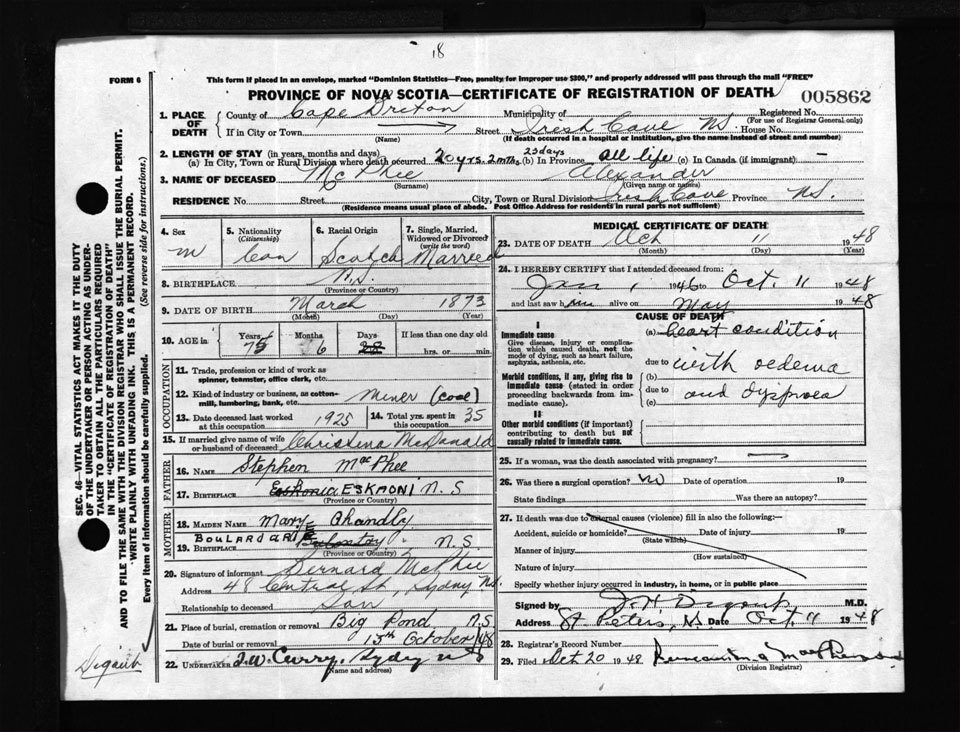 18
FORM 6
This form if placed in an envelope, marked "Dominion Statistics—Free, penalty for improper use $300," and properly addressed will pass through the mail "FREE"
PROVINCE OF NOVA SCOTIA—CERTIFICATE OF REGISTRATION OF DEATH
005862
1. PLACE OF DEATH
County of Cape Breton Municipality of Registered No.
(For use of Registrar General only)
If in City or Town Street Irish Cove NS House No.
(Name) (If death occurred in a hospital or institution, give the name instead of street and number)
2. LENGTH OF STAY (in years, months and days)
(a) In City, Town or Rural Division where death occurred 20 yrs. 2 mths. 23 days (b) In Province all life (c) In Canada (if immigrant) —
3. NAME OF DECEASED McPhee Alexander
(Surname) (Given name or names)
RESIDENCE No. Street City, Town or Rural Division Irish Cove Province NS.
(Residence means usual place of abode. Post Office Address for residents in rural parts not sufficient)
4. Sex
m
5. Nationality
(Citizenship)
Can
6. Racial Origin
Scotch
7. Single, Married, Widowed or Divorced
(write the word)
Married
8. BIRTHPLACE N.S.
(Province or Country)
9. DATE OF BIRTH March 1873
(Month) (Day) (Year)
10. AGE in
Years 75
Months 6
Days
If less than one day old
hrs. or min.
OCCUPATION
11. Trade, profession or kind of work as
spinner, teamster, office clerk, etc.
12. Kind of industry or business, as cotton-
mill, lumbering, bank, etc. Miner (coal)
13. Date deceased last worked
at this occupation 1925
14. Total yrs. spent in
this occupation 35
15. If married give name of wife
or husband of deceased Christina McDonald
FATHER
16. NAME Stephen MacPhee
17. BIRTHPLACE ESKAONI N.S
(Province or Country)
MOTHER
18. MAIDEN NAME Mary Chandly
BOULARDARIE
19. BIRTHPLACE N.S.
(Province or Country)
20. Signature of informant Bernard McPhee
Address 48 Central St, Sydney NS.
Relationship to deceased Son
21. Place of burial, cremation or removal Big Pond N.S.
Date of burial or removal 13th October/48
22. UNDERTAKER J.W. Curry, Sydney NS
(Name and address)
MEDICAL CERTIFICATE OF DEATH
23. DATE OF DEATH Oct 11 1948
(Month) (Day) (Year)
24. I HEREBY CERTIFY that I attended deceased from:
Jan 1 1946 to Oct. 11 1948
and last saw him alive on May 1948
CAUSE OF DEATH
I
Immediate cause
Give disease, injury or complica-
tion which caused death, not the
mode of dying, such as heart failure,
asphyxia, asthenia, etc.
(a) heart condition
due to with oedema
Morbid conditions, if any, giving rise to
immediate cause (stated in order
proceeding backwards from im-
mediate cause).
(b)
due to and dyspnoea
(c)
II
Other morbid conditions (if important)
contributing to death but not
causally related to immediate cause.
25. If a woman, was the death associated with pregnancy? —
26. Was there a surgical operation? no Date of operation 19
State findings Was there an autopsy?
27. If death was due to external causes (violence) fill in also the following:—
Accident, suicide or homicide? Date of injury 19
(State which)
Manner of injury
(How sustained)
Nature of injury
Specify whether injury occurred in industry, in home, or in public place
Signed by M.D.
Address St Peters, NS Date Oct 11 1948
28. Registrar's Record Number
29. Filed Oct 20 1948
(Division Registrar)
SEC. 46—VITAL STATISTICS ACT MAKES IT THE DUTY
OF THE UNDERTAKER OR PERSON ACTING AS UNDER-
TAKER TO OBTAIN ALL THE PARTICULARS REQUIRED
IN THE "CERTIFICATE OF REGISTRATION OF DEATH"
AND TO FILE THE SAME WITH THE DIVISION REGISTRAR WHO SHALL ISSUE THE BURIAL PERMIT.
WRITE PLAINLY WITH UNFADING INK. THIS IS A PERMANENT RECORD.
Every item of information should be carefully supplied. (See reverse side for instructions.)